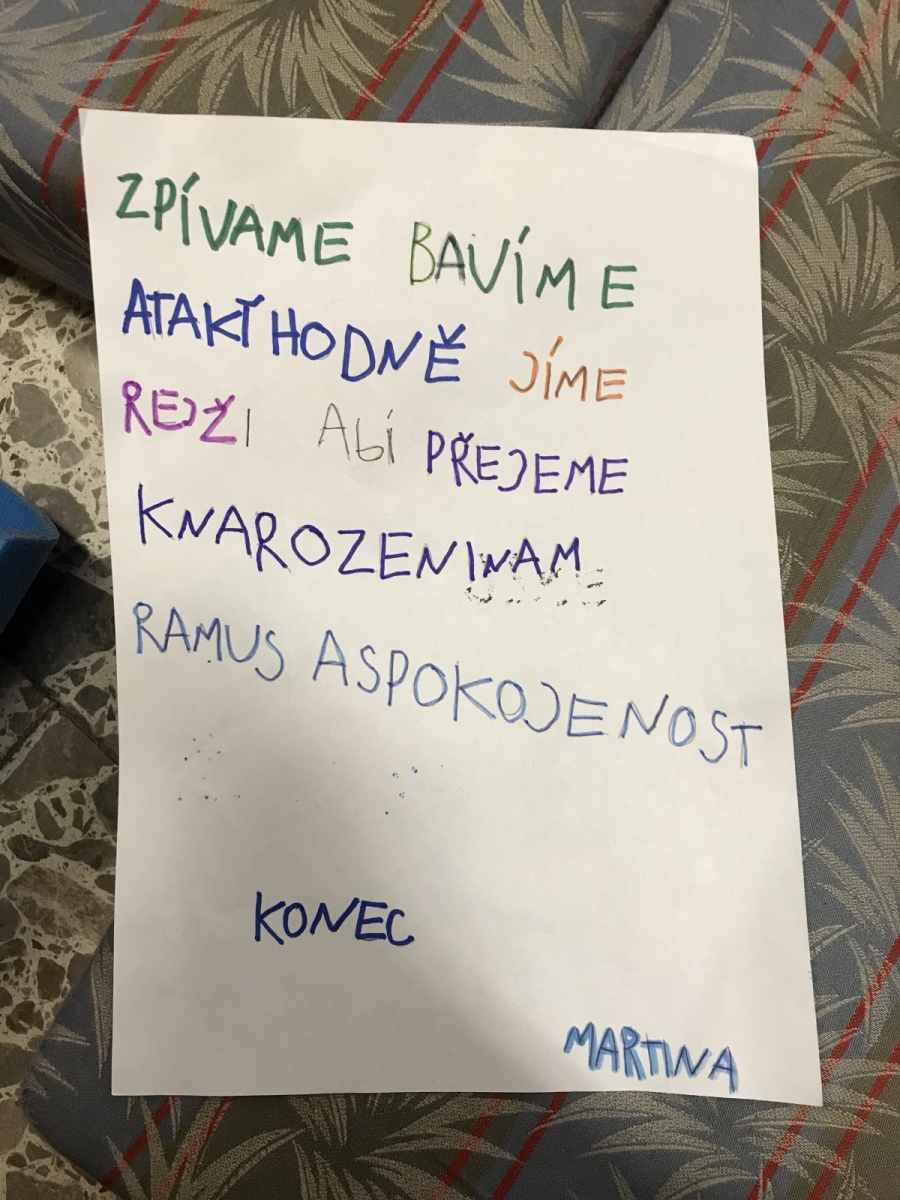 ZPÍVAME BAVÍME
ATAKŤHODNĚ JÍME
REJŽI Abí PŘEJEME
KNAROZENINAM
RAMUS ASPOKOJENOST
KONEC
MARTINA